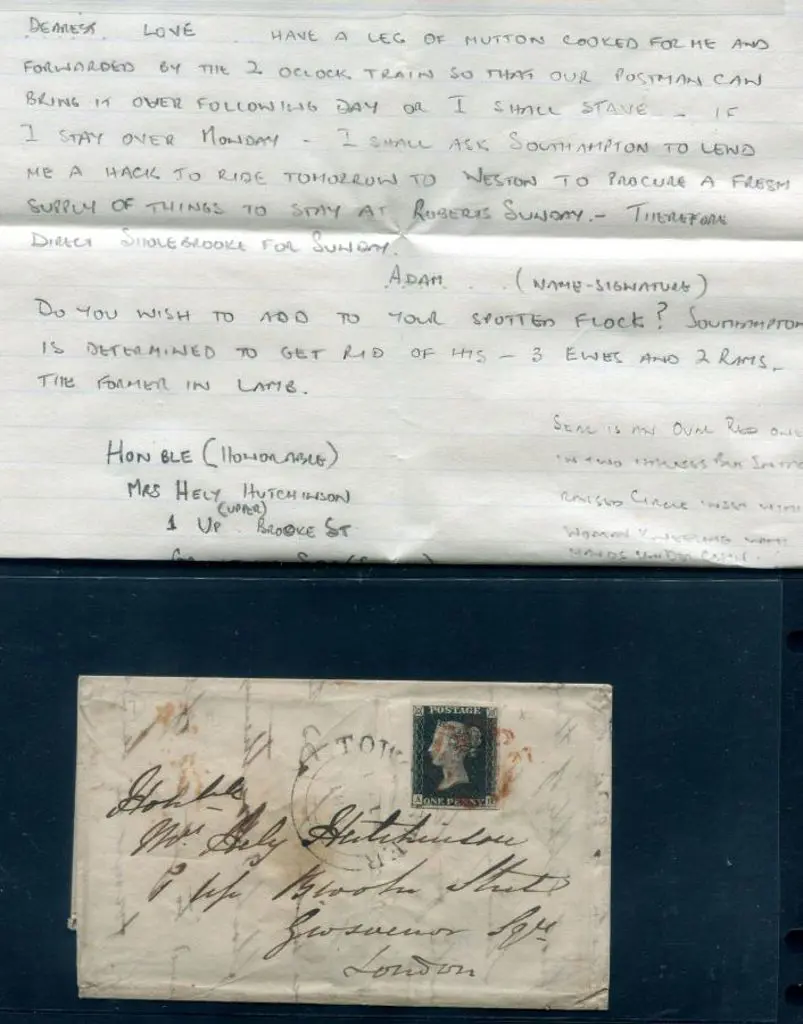 DEAREST LOVE HAVE A LEG OF MUTTON COOKED FOR ME AND
FORWARDED BY THE 2 OCLOCK TRAIN SO THAT OUR POSTMAN CAN
BRING IT OVER FOLLOWING DAY OR I SHALL STAVE - IF
I STAY OVER MONDAY - I SHALL ASK SOUTHAMPTON TO LEND
ME A HACK TO RIDE TOMORROW TO WESTON TO PROCURE A FRESH
SUPPLY OF THINGS TO STAY AT ROBERTS SUNDAY. - THEREFORE
DIRECT SHOLEBROOKE FOR SUNDAY.
ADAM . . (NAME-SIGNATURE)
DO YOU WISH TO ADD TO YOUR SPOTTED FLOCK? SOUTHAMPTON
IS DETERMINED TO GET RID OF HIS - 3 EWES AND 2 RAMS.
THE FORMER IN LAMB.
HON BLE (HONORABLE)
MRS HELY HUTCHINSON
(UPPER)
1 UP BROOKE ST
SEAL IS AN OVAL RED ONE
RAISED CIRCLE INSET WITH
WOMAN KNEELING WITH
HANDS UNDER CHIN.
POSTAGE
A
ONE PENNY
TOW
Honble
Mrs Hely Hutchinson
Up Brooke Street
Grosvenor Sqre
London